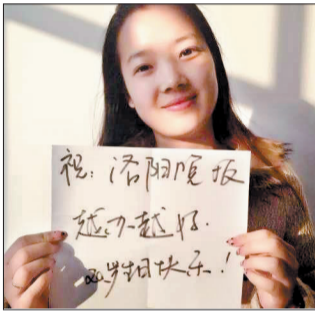 祝:洛阳晚报
越办越好.
20岁生日快乐!